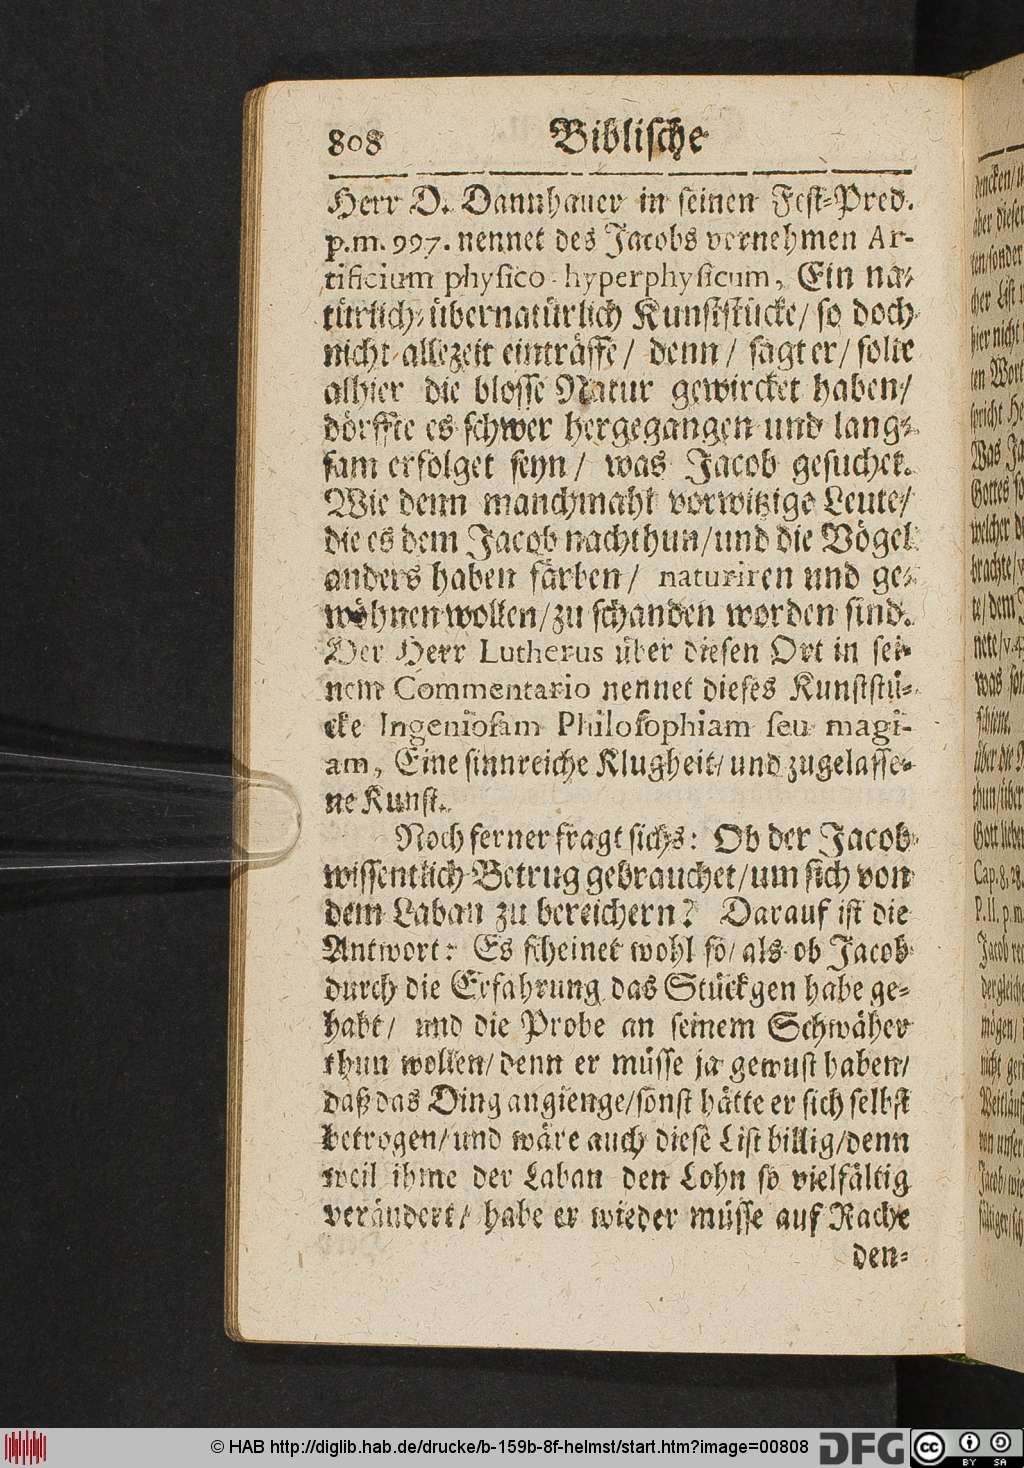 808 Biblische
Herr D. Dannhauer in seinen Fest-Pred.
p.m. 997. nennet des Jacobs vornehmen Ar-
tificium physico-hyperphysicum, Ein na-
türlich-übernatürlich Kunststücke/ so doch
nicht allezeit einträffe/ denn/ sagt er/ solte
alhier die blosse Natur gewircket haben/
dörffte es schwer hergegangen und lang-
sam erfolget seyn/ was Jacob gesuchet.
Wie denn manchmahl vorwitzige Leute/
die es dem Jacob nachthun/ und die Vögel
anders haben färben/ naturiren und ge-
wöhnen wollen/ zu schanden worden sind.
Der Herr Lutherus über diesen Ort in sei-
nem Commentario nennet dieses Kunststü-
cke Ingeniosam Philosophiam seu magi-
am, Eine sinnreiche Klugheit/ und zugelasse-
ne Kunst.
Noch ferner fragt sichs: Ob der Jacob
wissentlich Betrug gebrauchet/ um sich von
dem Laban zu bereichern? Darauf ist die
Antwort: Es scheinet wohl so/ als ob Jacob
durch die Erfahrung das Stückgen habe ge-
habt/ und die Probe an seinem Schwäher
thun wollen/ denn er müsse ja gewust haben/
daß das Ding angienge/ sonst hätte er sich selbst
betrogen/ und wäre auch diese List billig/ denn
weil ihme der Laban den Lohn so vielfältig
verändert/ habe er wieder müsse auf Rache
den-
© HAB http://diglib.hab.de/drucke/b-159b-8f-helmst/start.htm?image=00808 DFG cc BY SA